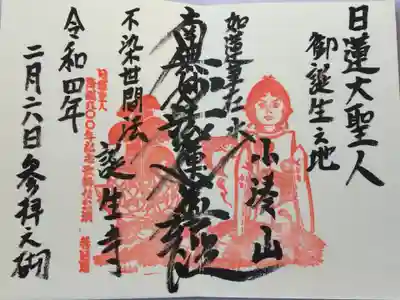 日蓮大聖人
御誕生之地
小湊山
如蓮華在水
南無妙法蓮華経
不染世間法
誕生寺
令和四年
二月二六日参拝之砌